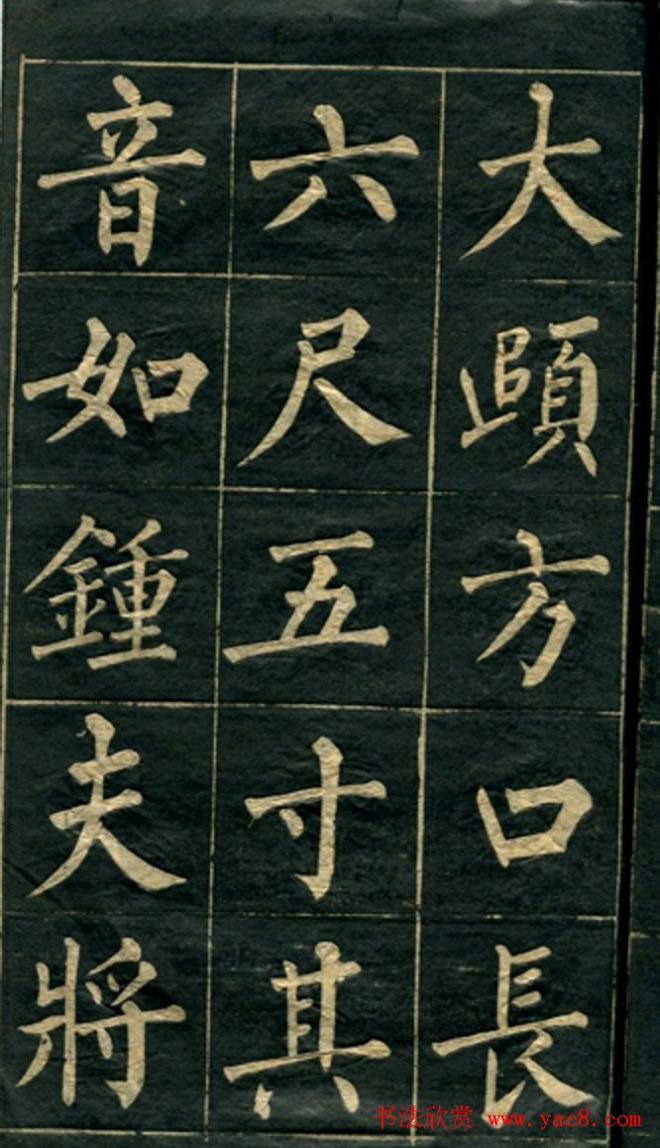 大頤方口長
六尺五寸其
音如鍾夫將
书法欣赏 www.yac8.com